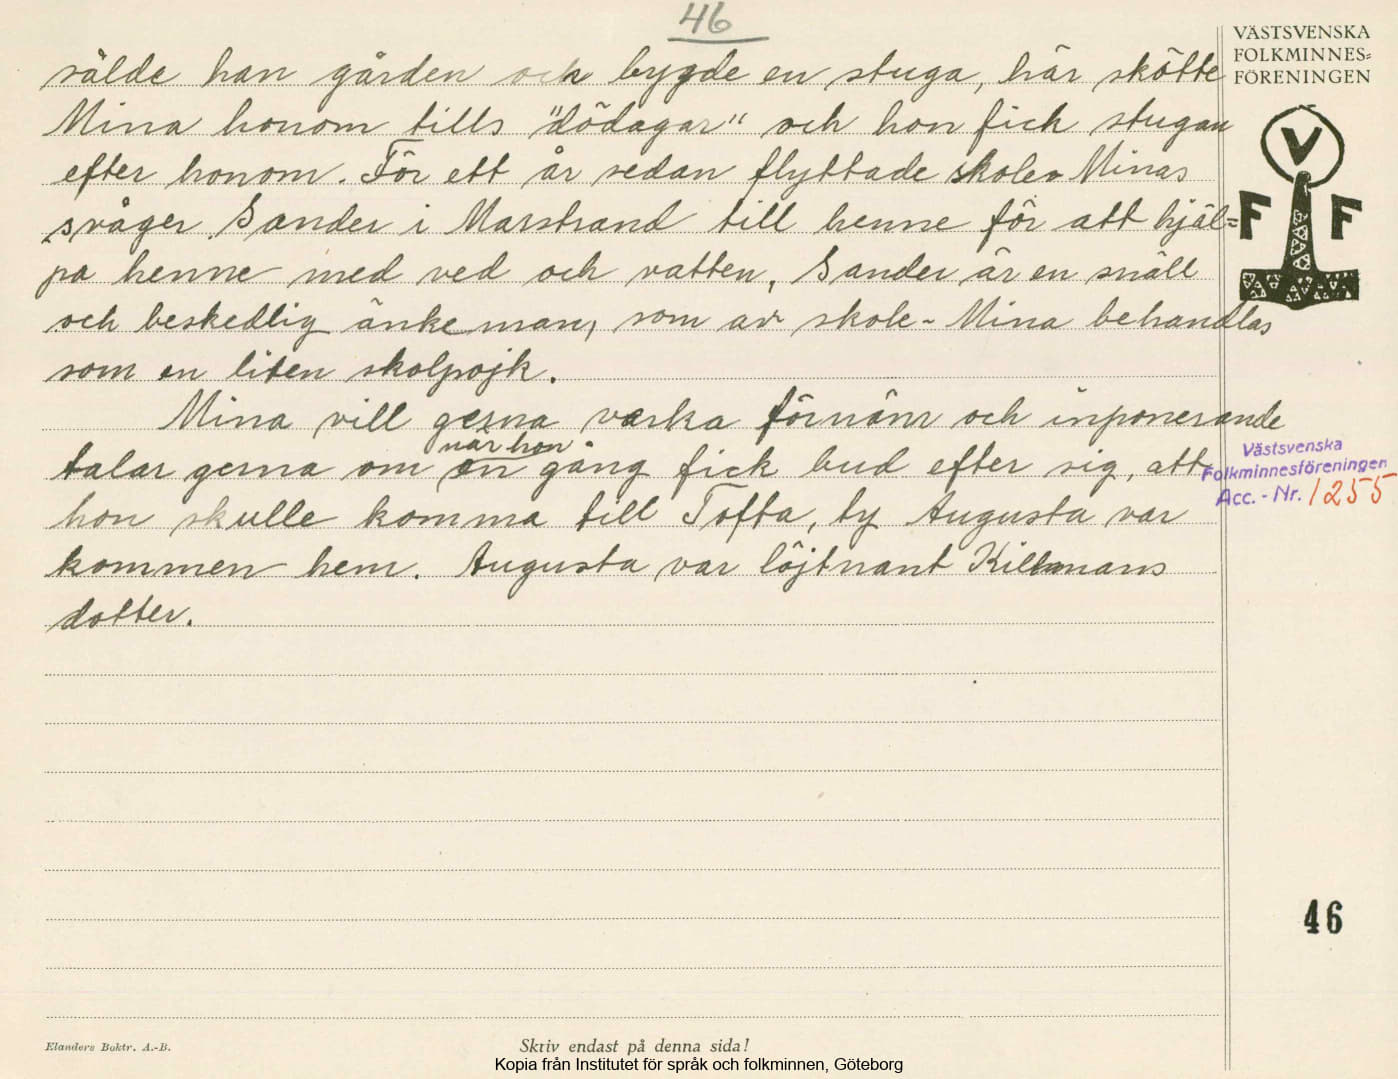 46
sålde han gården och bygde en stuga, här skötte
Mina honom tills "dödagar" och hon fick stugan
efter honom. För ett år sedan flyttade skolen Minas
svåger Sander i Marstrand till henne för att hjäl=
pa henne med ved och vatten, Sander är en snäll
och beskedlig änkeman, som av skole-Mina behandlas
som en liten skolpojk.
Mina vill gerna värka förnäm och inponerande
när hon
talar gerna om en gång fick bud efter sig, att
hon skulle komma till Tofta, ty Augusta var
kommen hem. Augusta var löjtnant Killmans
dotter.
VÄSTSVENSKA
FOLKMINNES=
FÖRENINGEN
V
F F
Västsvenska
Folkminnesföreningen
Acc.-Nr. 1255
46
Elanders Boktr. A.-B.
Skriv endast på denna sida!
Kopia från Institutet för språk och folkminnen, Göteborg